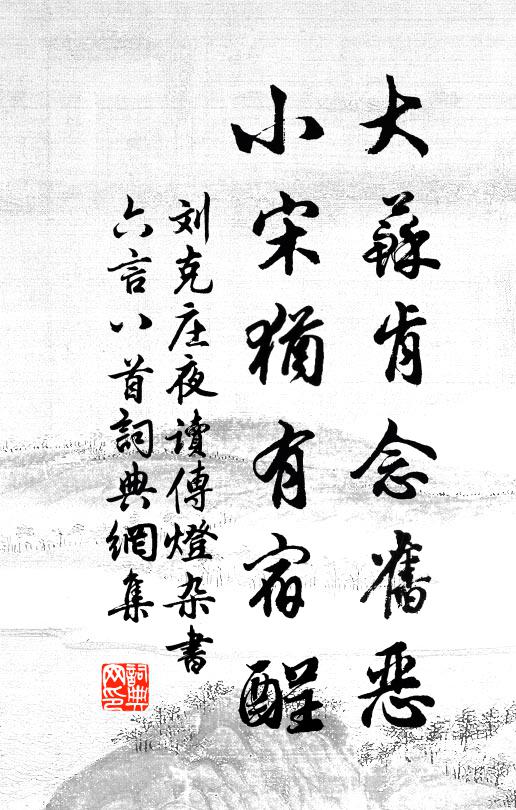 大蘇肯念舊惡
小宋猶有宿酲
刘克庄夜讀傳燈杂書
六言八首詞典網集
詞典網印